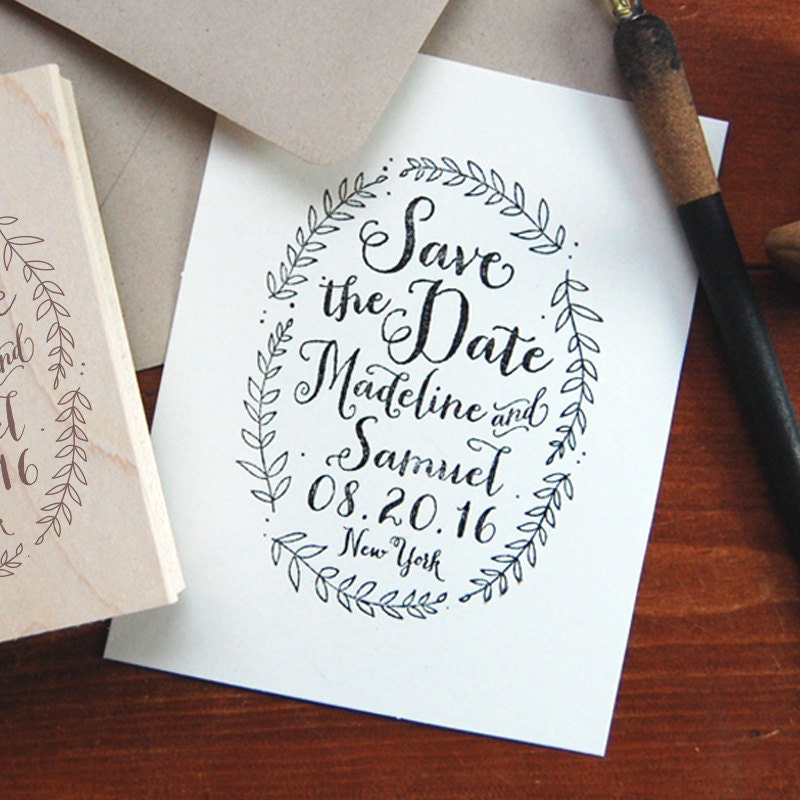 Save
the Date
Madeline and
Samuel
08.20.16
New York
nd
16